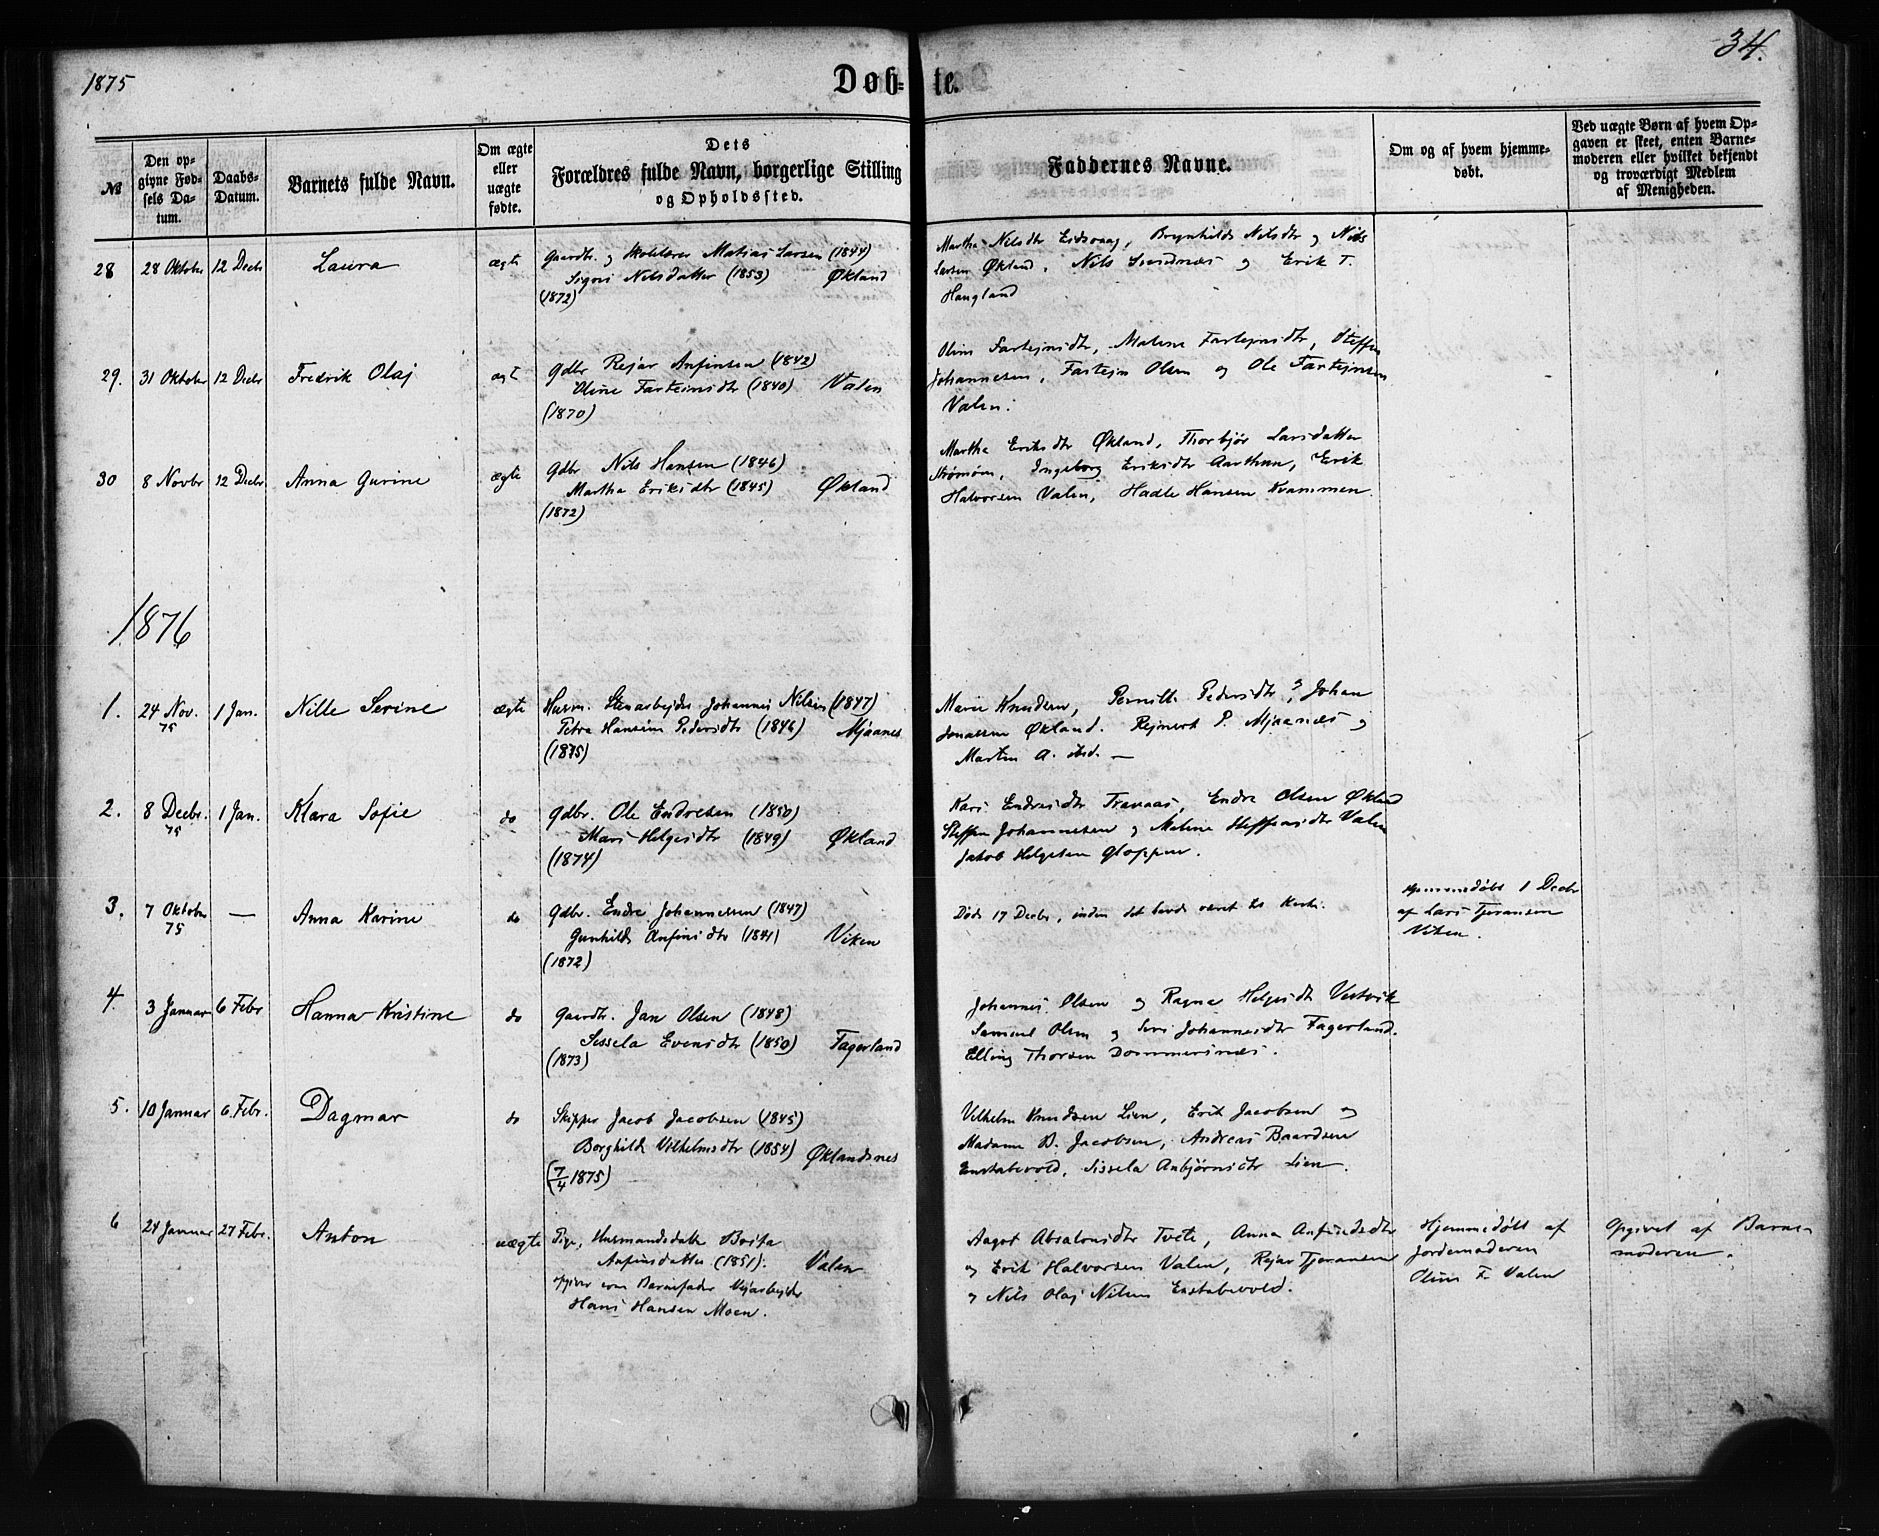 1875
Døb-te.
34.
№
Den op-
givne Fød-
sels Da-
tum.
Daabs-
Datum.
Barnets fulde Navn.
Om ægte
eller
uægte
fødte.
Dets
Forældres fulde Navn, borgerlige Stilling
og Opholdssted.
Faddernes Navne.
Om og af hvem hjemme-
døbt.
Ved uægte Børn af hvem Op-
gaven er skeet, enten Barne-
moderen eller hvilket bekjendt
og troværdigt Medlem
af Menigheden.
28
28 Oktober
12 Decbr
Laura
ægte
Gaardbr. og Skolelærer Matias Larsen (1844)
Nilsdatter (1853) Økland
(1872)
Martha Nilsdtr Eidsvaag, Brynhilde Nilsdtr og Nils
Larsen Økland, Nils og Erik T.
Haugland
29.
31 Oktober
12 Decbr
Fredrik Olaj
ægt
Gdbr Rejar Anfinsen (1842)
Oline Farteinsdtr (1840) Valen
(1870)
Oline Fartejnsdtr, Malene Fartejnsdtr, Steffen
Johannesen, Fartejn Olsen og Ole Fartejnsen
Valen.
30
8 Novbr
12 Decbr
Anna Gurine
ægte
Gdbr Nils Hansen (1846)
Martha Eriksdtr (1845) Økland
(1872)
Martha Eriksdtr Økland, Thorbjør Larsdatter
Strømøen, Ingeborg Eriksdtr Aarthun, Erik
Halvorsen Valen, Hadle Hansen Kvammen.
1876
1.
24 Nov.
75
1 Jan.
Nille Serine
ægte
Husm. Stenarbejder Johannes Nilsen (1847)
Petra Hansine Pedersdtr (1846) Mjaanes
(1875)
Marie Knudsen, Pernille Pedersdtr, Johan
Jonassen Økland. Rejnert P. Mjaanæs og
Martin A. ibid. —
2.
8 Decbr.
75
1 Jan.
Klara Sofie
do
Gdbr. Ole Endresen (1850)
Mari Helgesdtr (1849) Økland
(1874)
Kari Endresdtr Tranaas, Endre Olsen Økland
Steffen Johannesen og Malene Steffensdtr Valen
Jakob Helgesen Gloppen.
3.
7 Oktober
75
—
Anna Karine
do
Gdbr. Endre Johannessen (1847)
Gunhilde Anfinsdtr (1841) Viken
(1872)
Døde 17 Decbr, inden det havde været til Kirke.
Hjemmedøbt 1 Decbr
af Lars Tjeransen
Viken.
4.
3 Januar
6 Febr
Hanna Kristine
do
Gaardbr. Jan Olsen (1848)
Sissela Evensdtr (1850) Fagerland
(1873)
Johannes Olsen og Ragna Helgesdtr Vestvik
Samuel Olsen og Siri Johannesdtr Fagerland.
Elling Thorsen Dommersnæs.
5.
10 Januar
6. Febr.
Dagmar
do
Skipper Jacob Jacobsen (1845)
Borghilde Vilhelmsdtr (1854) Øklandsnes
(7/4 1875)
Vilhelm Knudsen Lien, Erik Jacobsen og
Madame B. Jacobsen, Andreas Baardsen
Enstabevold, Sissela Anbjørnsdtr Lien.
6
24 Januar
27 Febr.
Anton
uægte
Pige, Husmandsdatter
Anfinsdatter (1851). Valen
opgiver som Barnefader Vejarbejder
Hans Hansen Moen.
Aagot Absalonsdtr Tvete, Anna Anfindsdtr
og Erik Halvorsen Valen, Rejar Tjeransen
og Nils Olaj Nilsen Enstabevold.
Hjemmedøbt af
Jordemoderen
Oline F. Valen
Opgivet af Barne-
moderen.